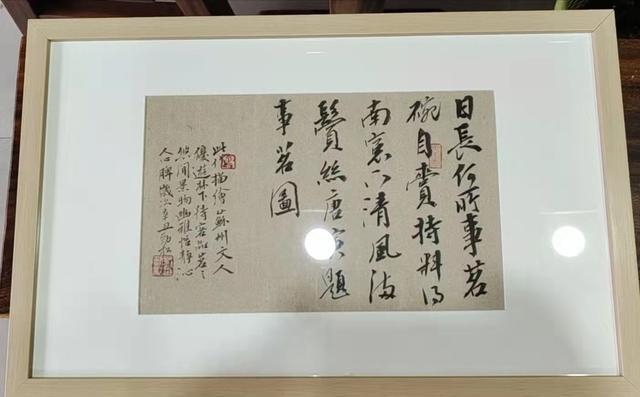 日長何所事茗
碗自賫持料得
南窓下清風滿
鬢絲唐寅題
事茗圖
此作描繪蘇州文人
優遊林下待客品茗之
悠閒景物幽雅恬靜沁
人脾歲次辛丑